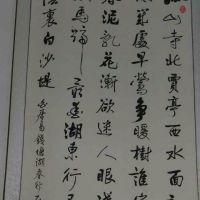 山寺北賈亭西水面
幾處早鶯爭暖樹誰家
春泥亂花漸欲迷人眼淺
馬蹄最愛湖東行不
陰裏白沙堤
居易錢塘湖春行